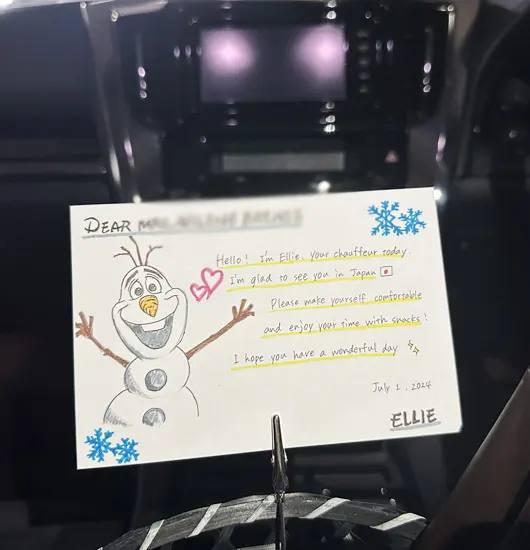 DEAR
Hello! I'm Ellie, your chauffeur today.
I'm glad to see you in Japan
Please make yourself comfortable
and enjoy your time with snacks!
I hope you have a wonderful day
July 1, 2024
ELLIE